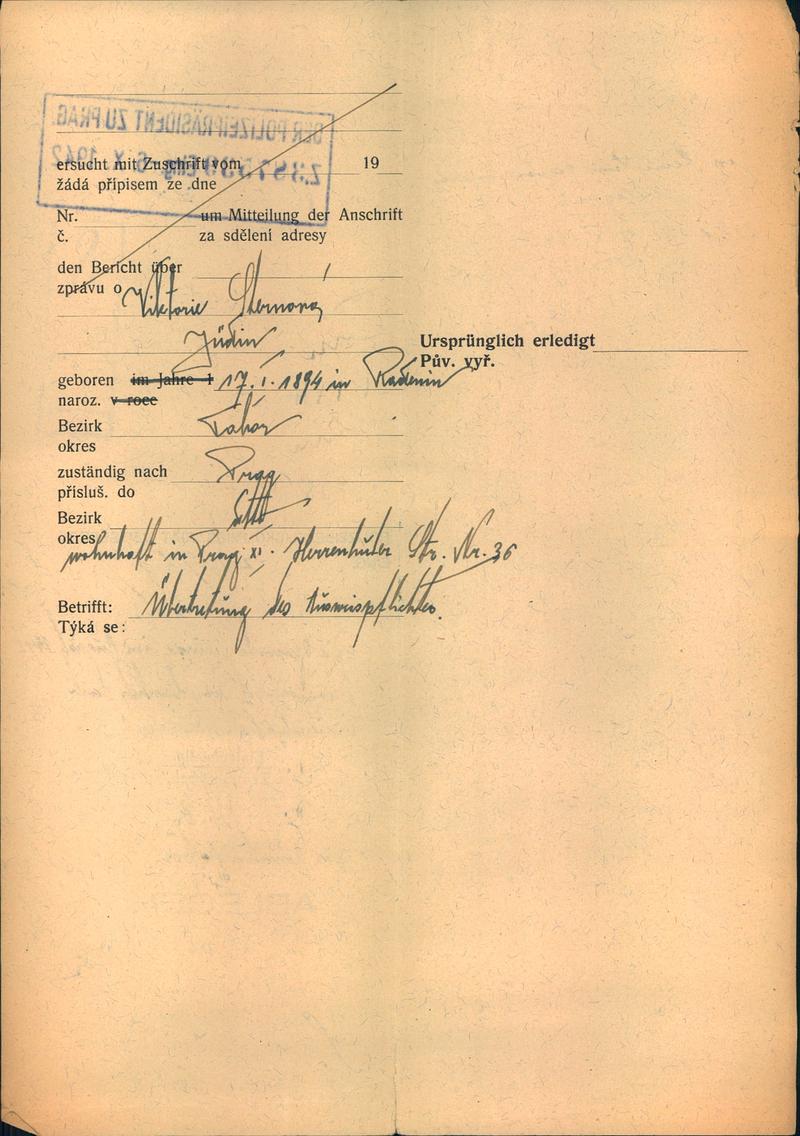 DER POLIZEIPRÄSIDENT ZU PRAG
ersucht mit Zuschrift vom 19
žádá přípisem ze dne
Nr. um Mitteilung der Anschrift
č. za sdělení adresy
den Bericht über
zprávu o Viktorie Sternová
Jüdin
Ursprünglich erledigt
Pův. vyř.
geboren im Jahre 1 17. I. 1894 in Radenin
naroz. v roce
Bezirk Tábor
okres
zuständig nach Prag
přísluš. do
Bezirk dtto
okres
wohnhaft in Prag XI. Herrenhuter Str. Nr. 36
Betrifft: Übertretung des Ausweispflichtes.
Týká se: